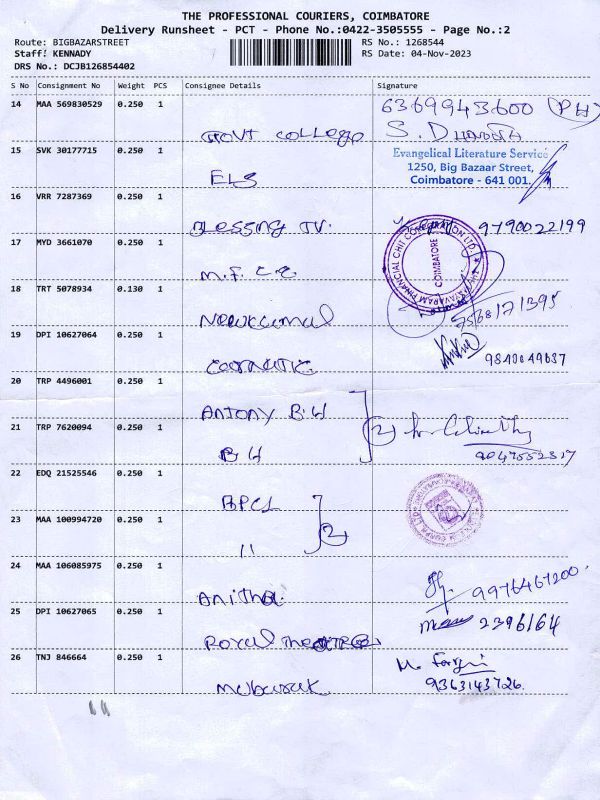 THE PROFESSIONAL COURIERS, COIMBATORE
Delivery Runsheet - PCT - Phone No.:0422-3505555 - Page No.:2
Route: BIGBAZARSTREET RS No.: 1268544
Staff: KENNADY RS Date: 04-Nov-2023
DRS No.: DCJB126854402
S No Consignment No Weight PCS Consignee Details Signature
14 MAA 569830529 0.250 1 GOVT COLLEGE 6369943600 (PH)
S. DHANDA
15 SVK 30177715 0.250 1 ELS Evangelical Literature Service
1250, Big Bazaar Street,
Coimbatore - 641 001.
16 VRR 7287369 0.250 1 Blessing TV. 9790022199
17 MYD 3661070 0.250 1 M.F.C.C COIMBATORE
18 TRT 5078934 0.130 1 Newkamal
19 DPI 10627064 0.250 1 9840649637
20 TRP 4496001 0.250 1 ANTONY B.H
21 TRP 7620094 0.250 1 B H (2) 9047552317
22 EDQ 21525546 0.250 1 BPCL
23 MAA 100994720 0.250 1 11 (2)
24 MAA 106085975 0.250 1 Anitha 9976467200.
25 DPI 10627065 0.250 1 Royal Theatre 2396164
26 TNJ 846664 0.250 1 Mubarak 9363143726.